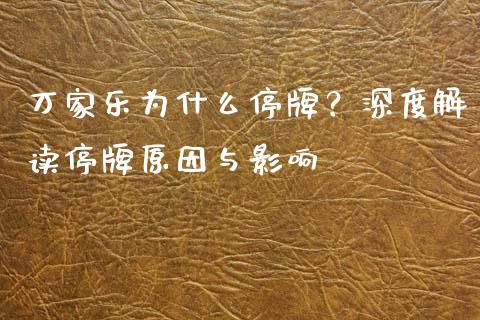 万家乐为什么停牌？深度解
读停牌原因与影响